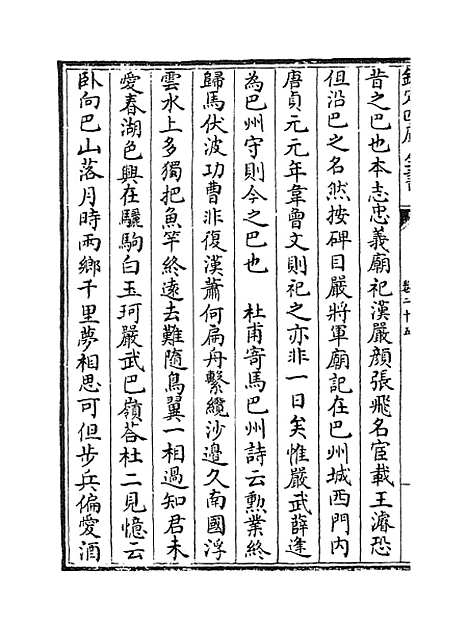 欽定四庫全書
卷二十五
昔之巴也本志忠義廟祀漢嚴顔張飛名宦載王濬恐
但沿巴之名然按碑目嚴將軍廟記在巴州城西門内
唐貞元元年韋曾文則祀之亦非一日矣惟嚴武薛逢
為巴州守則今之巴也　杜甫寄馬巴州詩云勲業終
歸馬伏波功曹非復漢蕭何扁舟繫纜沙邉久南國浮
雲水上多獨把魚竿終逺去難隨鳥翼一相過知君未
愛春湖色興在驪駒白玉珂嚴武巴嶺荅杜二見憶云
卧向巴山落月時兩鄉千里夢相思可但步兵偏愛酒